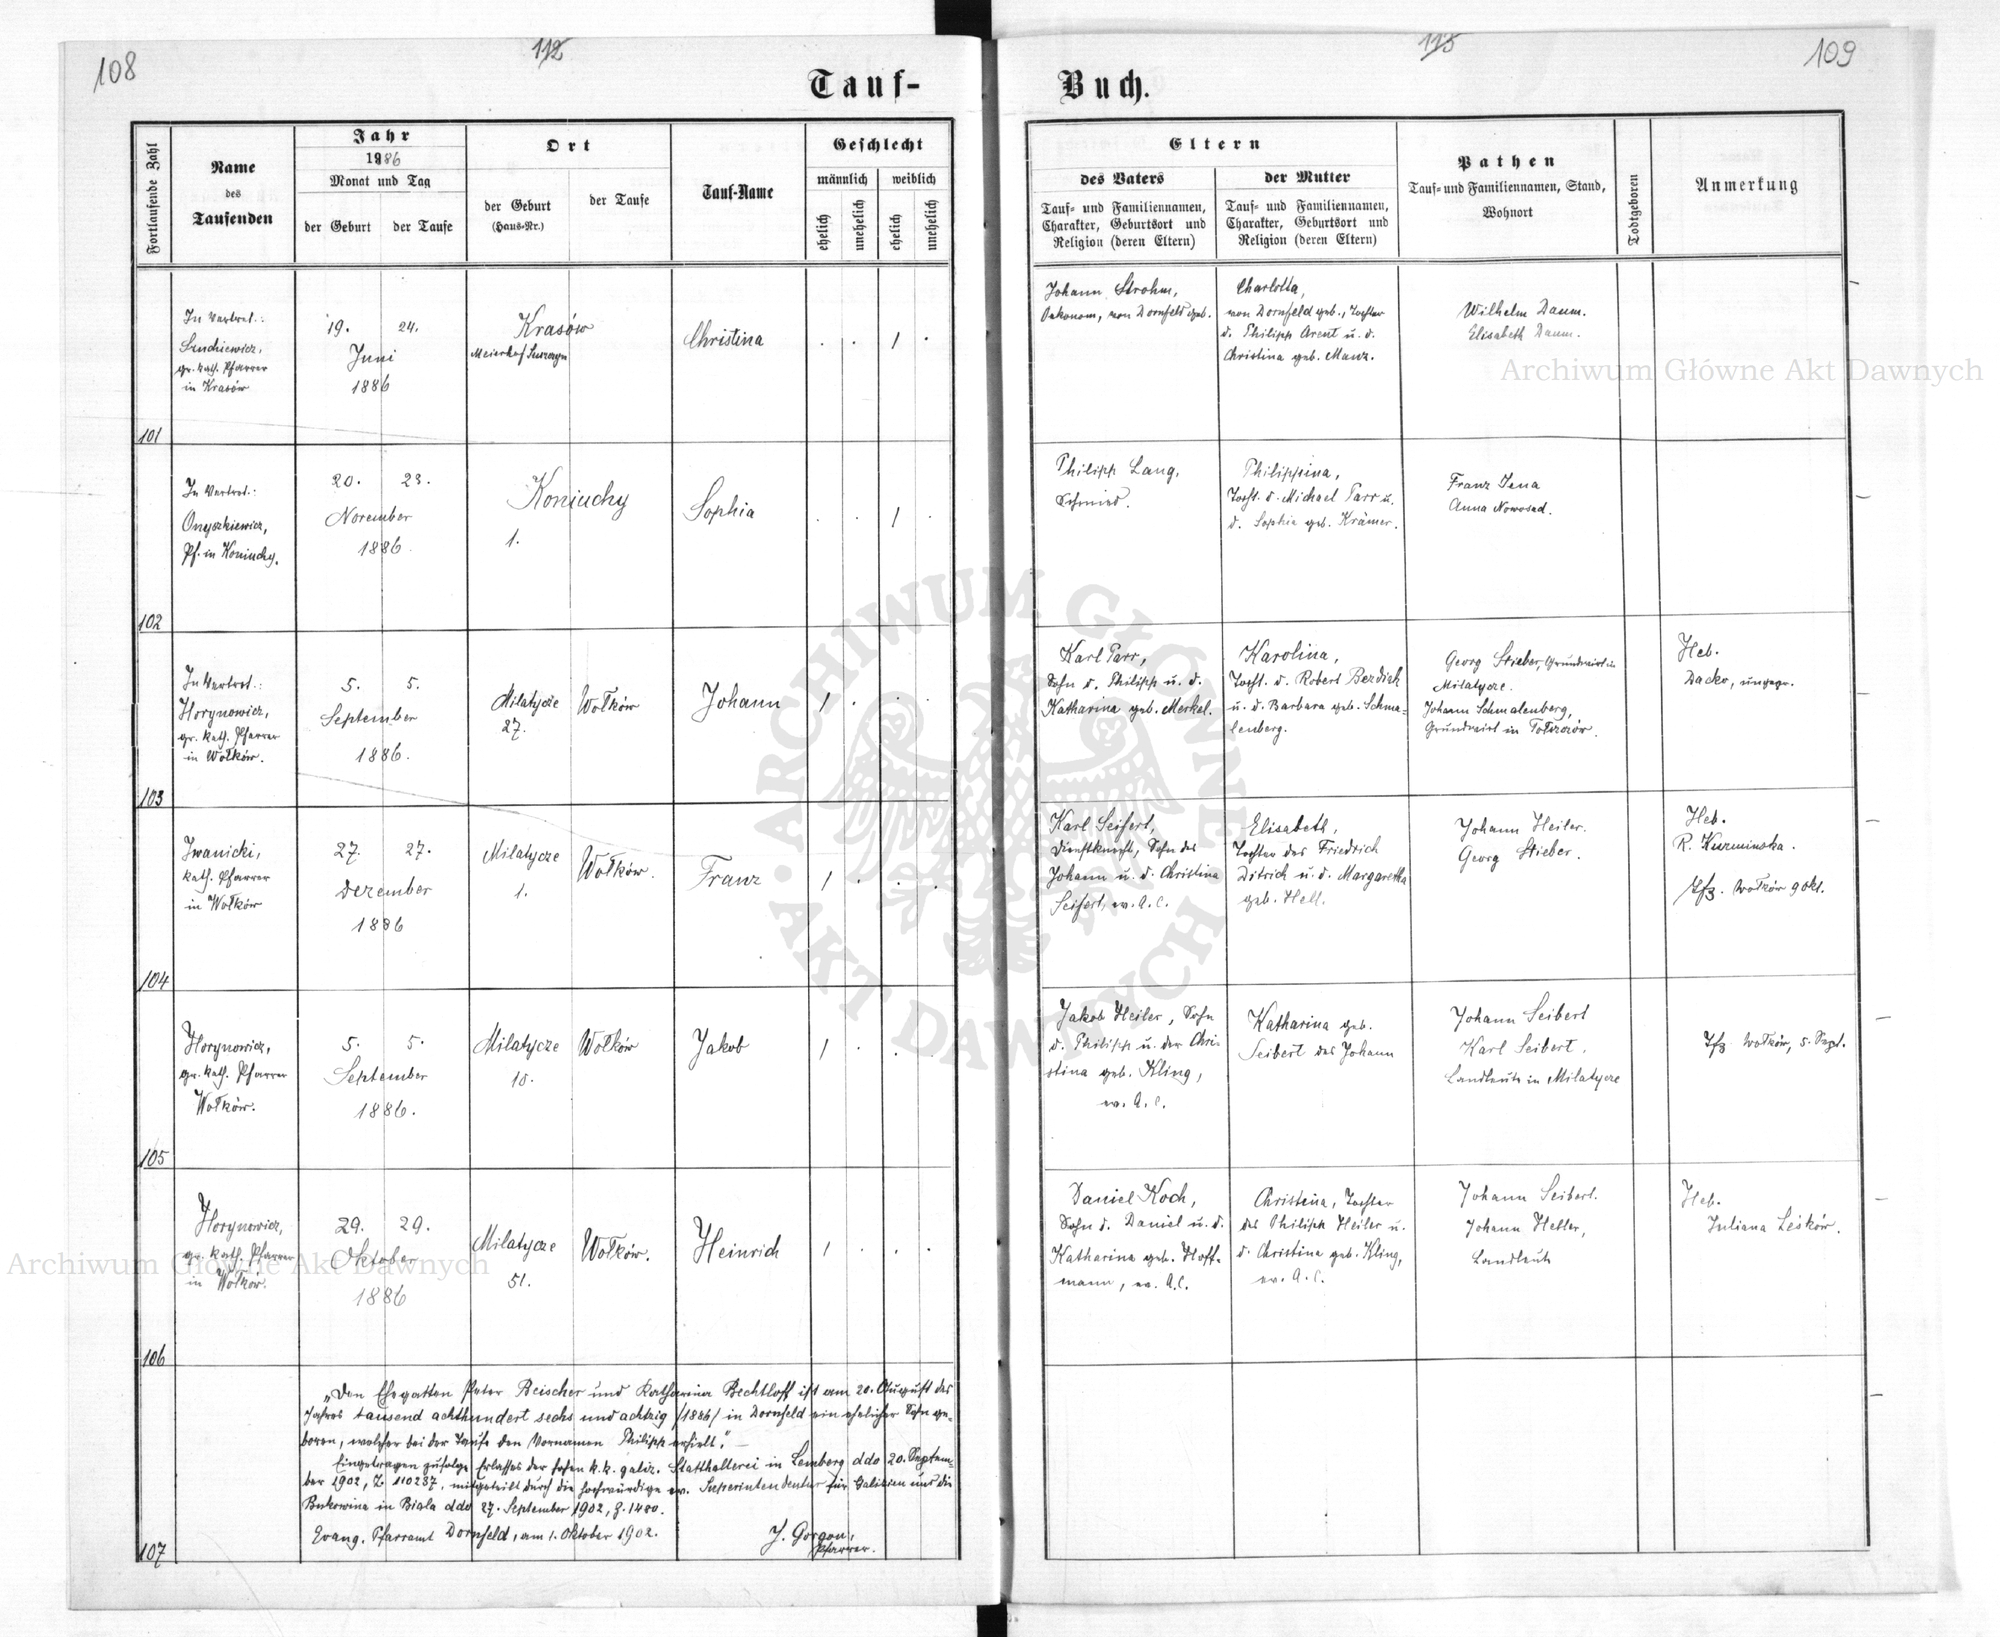 108
112
Tauf-
Fortlaufende Zahl
Name
des
Taufenden
Jahr
1886
Monat und Tag
der Geburt
der Taufe
Ort
der Geburt
(Haus-Nr.)
der Taufe
Tauf-Name
Geschlecht
männlich
weiblich
ehelich
unehelich
ehelich
unehelich
In Vertret.:
gr. kath. Pfarrer
in Krasów
19. 24.
Juni
1886
Krasów
Meierhof
Christina
. . 1 .
101
In Vertret.:
Onyszkiewicz,
Pf. in Koniuchy.
20. 23.
November
1886.
Koniuchy
1.
Sophia
. . 1 .
102
In Vertret.:
Horynowicz,
gr. kath. Pfarrer
in Wołków.
5. 5.
September
1886.
Milatycze
27.
Wołków
Johann
1 . . .
103
Iwanicki,
kath. Pfarrer
in Wołków
27. 27.
Dezember
1886
Milatycze
1.
Wołków.
Franz
1 . . .
104
Horynowicz,
gr. kath. Pfarrer
Wołków.
5. 5.
September
1886.
Milatycze
10.
Wołków
Jakob
1 . . .
105
Horynowicz,
gr. kath. Pfarrer
in Wołków.
29. 29.
Oktober
1886
Milatycze
51.
Wołków.
Heinrich
1 . . .
106
„Den Ehegatten Peter Beischer und Katharina Bechtloff ist am 20. August des
Jahres tausend achthundert sechs und achtzig /1886/ in Dornfeld ein ehelicher Sohn ge-
boren, welcher bei der Taufe den Vornamen Philipp erhielt."
Eingetragen zufolge Erlasses der hohen k.k. galiz. Statthalterei in Lemberg ddo 20. Septem-
ber 1902, Z. 110287, mitgeteilt durch die hochwürdige ev. Superintendentur für Galizien und die
Bukowina in Biala ddo 27. September 1902, Z. 1480.
Evang. Pfarramt Dornfeld, am 1. Oktober 1902.
J. Gorgon,
Pfarrer.
107
115
109
Buch.
Eltern
des Vaters
Tauf- und Familiennamen,
Charakter, Geburtsort und
Religion (deren Eltern)
der Mutter
Tauf- und Familiennamen,
Charakter, Geburtsort und
Religion (deren Eltern)
Pathen
Tauf- und Familiennamen, Stand,
Wohnort
Todtgeboren
Anmerkung
Johann Strohm,
Oekonom, von Dornfeld geb.
Charlotta,
von Dornfeld geb., Tochter
d. Philipp Arent u. d.
Christina geb. Manz.
Wilhelm Daum.
Elisabeth Daum.
Philipp Lang,
Schmied.
Philippina,
Tocht. d. Michael Parr u.
d. Sophia geb. Krämer.
Franz Jena
Anna Nowosad.
Karl Parr,
Sohn d. Philipp u. d.
Katharina geb. Merkel.
Karolina,
Tocht. d. Robert Berdich
u. d. Barbara geb. Schma-
lenberg.
Georg Stieber, Grundwirt in
Milatycze.
Johann Schmalenberg,
Grundwirt in
Heb.
Dacko, ungepr.
Karl Seifert,
Dienstknecht, Sohn des
Johann u. d. Christina
Seifert, ev. A.C.
Elisabeth,
Tochter des Friedrich
Ditrich u. d. Margaretha
geb. Hell.
Johann Heiler.
Georg Stieber.
Heb.
R. Kuzminska.
Tfz. Wołków 9 Okt.
Jakob Heiler, Sohn
d. Philipp u. der Chri-
stina geb. Kling,
ev. A.C.
Katharina geb.
Seibert des Johann
Johann Seibert
Karl Seibert,
Landleute in Milatycze
Tfz Wołków, 5. Sept.
Daniel Koch,
Sohn d. Daniel u. d.
Katharina geb. Hoff-
mann, ev. A.C.
Christina, Tochter
des Philipp Heiler u.
d. Christina geb. Kling,
ev. A.C.
Johann Seibert.
Johann Hetler,
Landleute
Heb.
Juliana Leśków.
Archiwum Główne Akt Dawnych
ARCHIWUM GŁÓWNE • AKT DAWNYCH •
Archiwum Główne Akt Dawnych